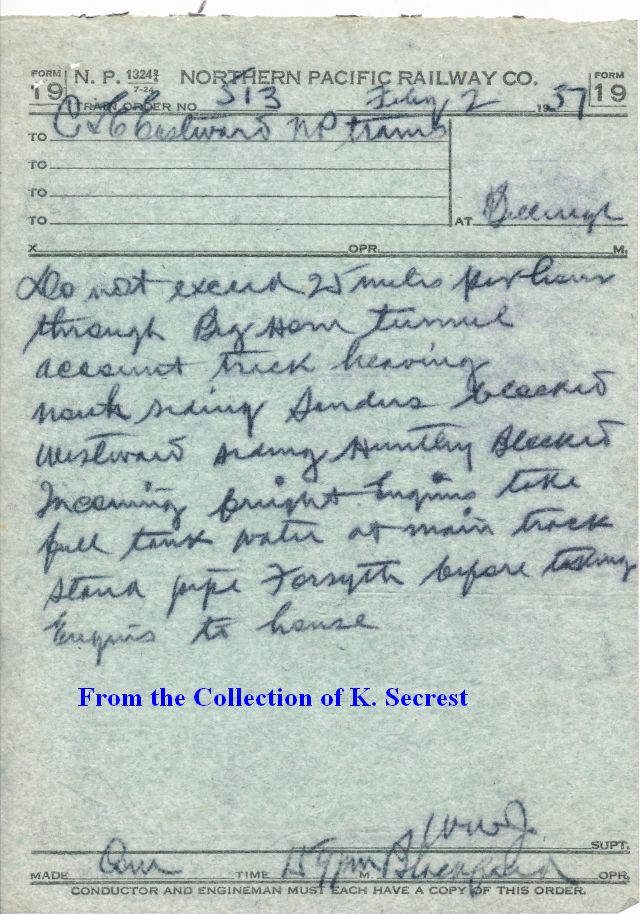 FORM 19 N. P. 1324 7-24 NORTHERN PACIFIC RAILWAY CO. FORM 19
TRAIN ORDER NO. 513 Feby 2 1937
TO C&E Eastward NP trains
TO
TO
TO
AT Billings
X OPR. M.
Do not exceed 25 miles per hour
through Big Horn tunnel
account track heaving
north siding Sanders blocked
Westward siding Huntley Blocked
Incoming freight Engines take
full tank water at main track
stand pipe Forsyth before taking
Engines to house
From the Collection of K. Secrest
SUPT.
MADE Com TIME 159 pm M. Blackford OPR.
CONDUCTOR AND ENGINEMAN MUST EACH HAVE A COPY OF THIS ORDER.